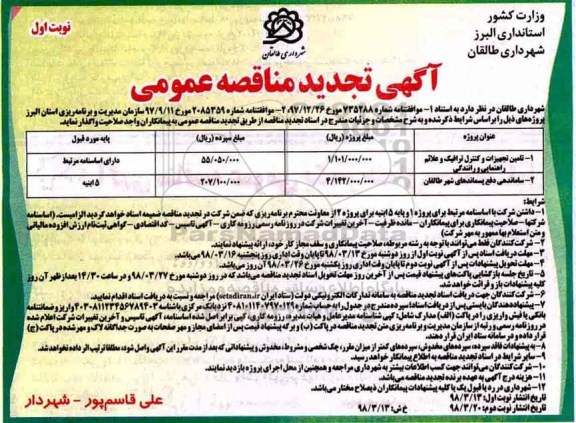 وزارت کشور
استانداری البرز
شهرداری طالقان
نوبت اول
شهرداری طالقان
آگهی تجدید مناقصه عمومی
شهرداری طالقان در نظر دارد به استناد ۱- موافقتنامه شماره ۷۳۵۲۸۸ مورخ ۹۷/۱۲/۲۶ ۲- موافقتنامه شماره ۲۰۸۵۳۵۹ مورخ ۹۷/۹/۱۱ سازمان مدیریت و برنامه‌ریزی استان البرز
پروژه‌های ذیل را براساس شرایط ذکر شده و به شرح مشخصات و جزئیات مندرج در اسناد تجدید مناقصه از طریق تجدید مناقصه عمومی به پیمانکاران واجد صلاحیت واگذار نماید.
عنوان پروژه مبلغ پروژه (ریال) مبلغ سپرده (ریال) پایه مورد قبول
۱- تامین تجهیزات و کنترل ترافیک و علائم راهنمایی و رانندگی ۱/۱۰۱/۰۰۰/۰۰۰ ۵۵/۰۵۰/۰۰۰ دارای اساسنامه مرتبط
۲- ساماندهی دفع پسماندهای شهر طالقان ۴/۱۴۲/۰۰۰/۰۰۰ ۲۰۷/۱۰۰/۰۰۰ ۵ ابنیه
شرایط:
۱- داشتن شرکت با اساسنامه مرتبط برای پروژه ۱ و پایه ۵ ابنیه برای پروژه ۲ از معاونت محترم برنامه ریزی که ضمن شرکت در تجدید مناقصه ضمیمه اسناد خواهد گردید الزامیست. (اساسنامه
شرکتها – صلاحیت پیمانکاری برای پیمانکاران – مانده ظرفیت – آخرین تغییرات شرکت در روزنامه رسمی و رزومه کاری – آگهی تاسیس – کد اقتصادی – گواهی ثبت نام ارزش افزوده مالیاتی
و متن استعلام بها ممهور به مهر شرکت)
۲- شرکت کنندگان فقط می‌توانند با توجه به رشته مربوطه، صلاحیت پیمانکاری و سقف مجاز کار خود، ارائه پیشنهاد نمایند.
۳- مهلت دریافت اسناد پس از آگهی نوبت اول از روز دوشنبه مورخ ۹۸/۰۳/۱۳ تا پایان وقت اداری روز پنجشنبه ۹۸/۰۳/۱۶ می‌باشد.
۴- مهلت تحویل پیشنهادات پس از آگهی نوبت دوم تا پایان وقت اداری روز یکشنبه مورخ ۹۸/۰۳/۲۶ آن روز می‌باشد.
۵- تاریخ جلسه بازگشایی پاکات های پیشنهاد قیمت پس از آخرین روز مهلت تحویل اسناد تجدید مناقصه می‌باشد که در روز دوشنبه مورخ ۹۸/۰۳/۲۷ و در ساعت ۱۴/۳۰ بعد از ظهر آن روز
کلیه پیشنهادات باز و قرائت خواهد شد.
۶- شرکت کنندگان جهت دریافت اسناد تجدید مناقصه به سامانه تدارکات الکترونیکی دولت (ستاد ایران setadiran.ir) مراجعه و نسبت به دریافت اسناد اقدام نمایند.
در روزنامه رسمی و رتبه از سازمان مدیریت و برنامه ریزی متن تجدید مناقصه در پاکت (ب) و برگه پیشنهاد قیمت پس از امضای مجاز و مهر صفحات به صورت جداگانه لاک و مهر شده در پاکت (ج)
قرار داده و در سامانه ستاد ایران قرار دهند.
۸- به پیشنهادات فاقد سپرده، سپرده‌های مخدوش، سپرده‌های کمتر از میزان مقرر، چک شخصی و مشروط، مخدوش و پیشنهاداتی که بعد از مدت مقرر این آگهی واصل شود، مطلقا ترتیب اثر داده نخواهد شد.
۹- سایر شرایط در اسناد تجدید مناقصه به اطلاع پیمانکار خواهد رسید.
۱۰- شرکت کنندگان می‌توانند جهت کسب اطلاعات بیشتر به شهرداری مراجعه و همچنین از محل اجرای پروژه بازدید نمایند.
۱۱- هزینه درج آگهی به عهده برنده تجدید مناقصه می‌باشد.
۱۲- شهرداری در رد یا قبول یک یا کلیه پیشنهادات پیمانکاران ذیصلاح مختار می‌باشد.
تاریخ انتشار نوبت اول: ۹۸/۳/۱۳
تاریخ انتشار نوبت دوم: ۹۸/۳/۲۰ خ ش: ۹۸/۳/۱۳
علی قاسم‌پور - شهردار